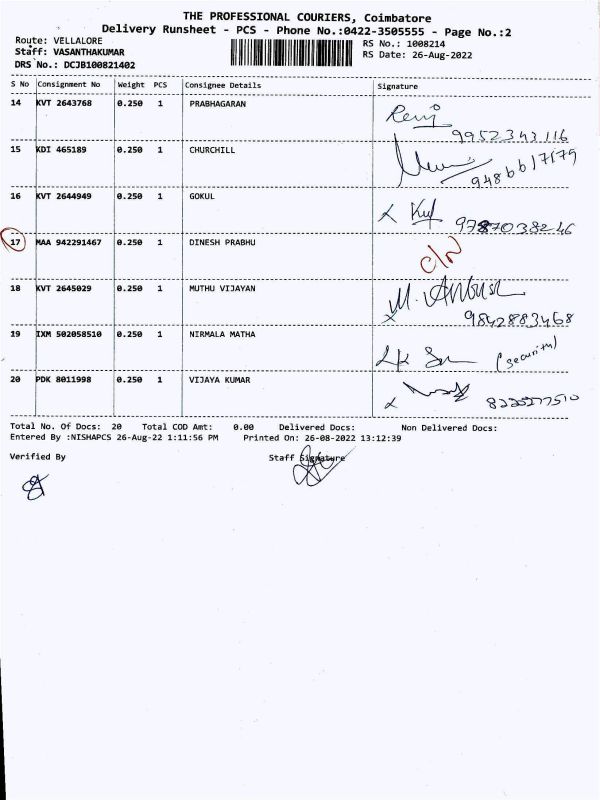 THE PROFESSIONAL COURIERS, Coimbatore
Delivery Runsheet - PCS - Phone No.:0422-3505555 - Page No.:2
Route: VELLALORE
RS No.: 1008214
Staff: VASANTHAKUMAR
RS Date: 26-Aug-2022
DRS No.: DCJB100821402
S No Consignment No Weight PCS Consignee Details Signature
14 KVT 2643768 0.250 1 PRABHAGARAN
9952343116
15 KDI 465189 0.250 1 CHURCHILL
9486617179
16 KVT 2644949 0.250 1 GOKUL
9787038246
17 MAA 942291467 0.250 1 DINESH PRABHU
18 KVT 2645029 0.250 1 MUTHU VIJAYAN
9842883468
19 IXM 502058510 0.250 1 NIRMALA MATHA
(security)
20 PDK 8011998 0.250 1 VIJAYA KUMAR
Total No. Of Docs: 20 Total COD Amt: 0.00 Delivered Docs: Non Delivered Docs:
Entered By :NISHAPCS 26-Aug-22 1:11:56 PM Printed On: 26-08-2022 13:12:39
Verified By Staff Signature